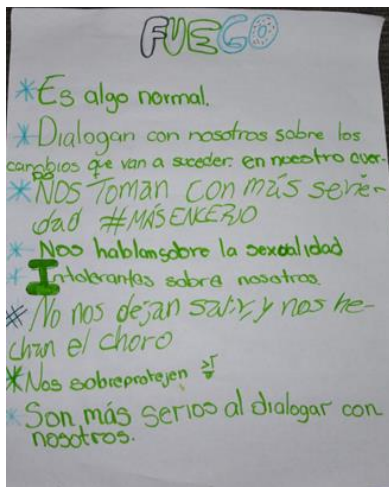 FUEGO
*Es algo normal.
*Dialogan con nosotros sobre los
cambios que van a suceder. en nuestro cuer-
po
*NOS Toman con más serie-
dad #MÁSENCERIO
*Nos hablan sobre la sexualidad
*Intolerantes sobre nosotros.
*No nos dejan salir, y nos he-
chan el choro
*Nos sobreprotejen
*Son más serios al dialogar con
nosotros.